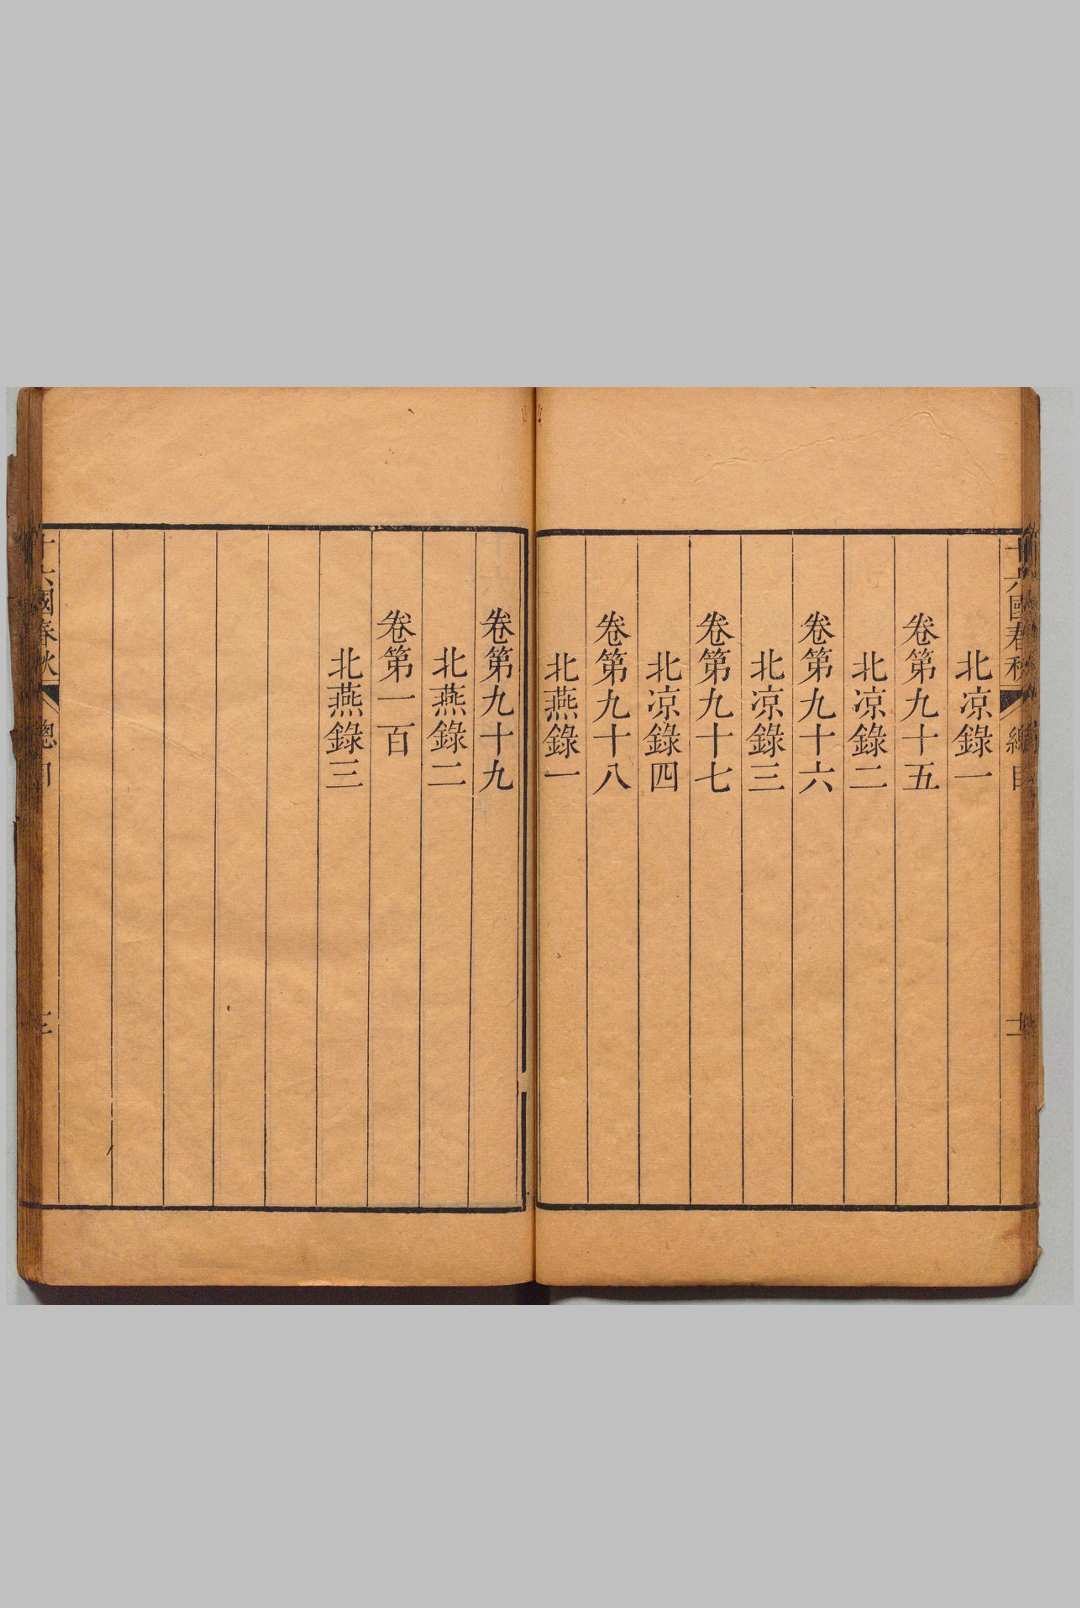 十六國春秋 總目 十二
北凉錄一
卷第九十五
北凉錄二
卷第九十六
北凉錄三
卷第九十七
北凉錄四
卷第九十八
北燕錄一
卷第九十九
北燕錄二
卷第一百
北燕錄三
十六國春秋 總目